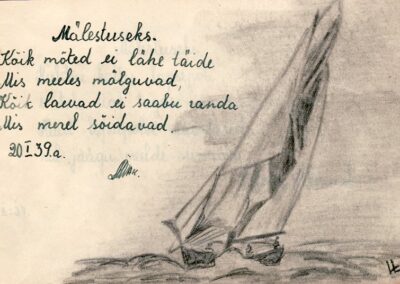 Mälestuseks.
Kõik mõted ei lähe täide
Mis meeles mõlguvad,
Kõik laevad ei saabu randa
Mis merel sõidavad.
20 I 39.a.